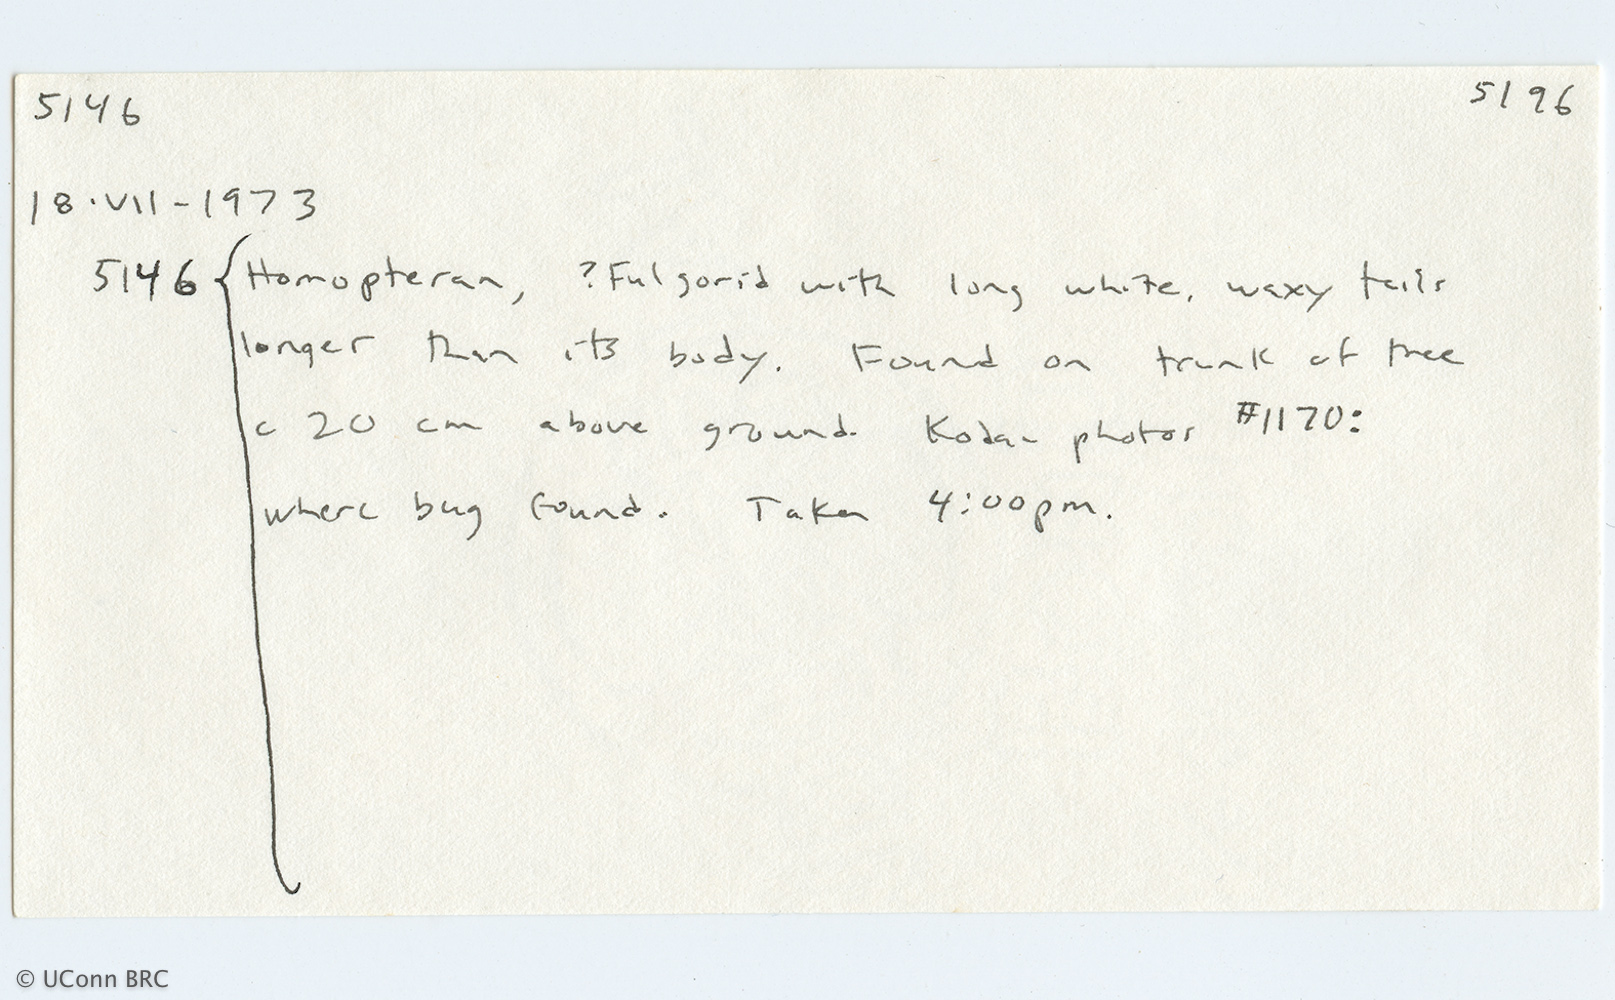 5146 5196
18·VII-1973
5146 { Homopteran, ?Fulgorid with long white, waxy tails
longer than its body. Found on trunk of tree
c 20 cm above ground. Kodac photos #1170:
where bug found. Taken 4:00pm.
© UConn BRC